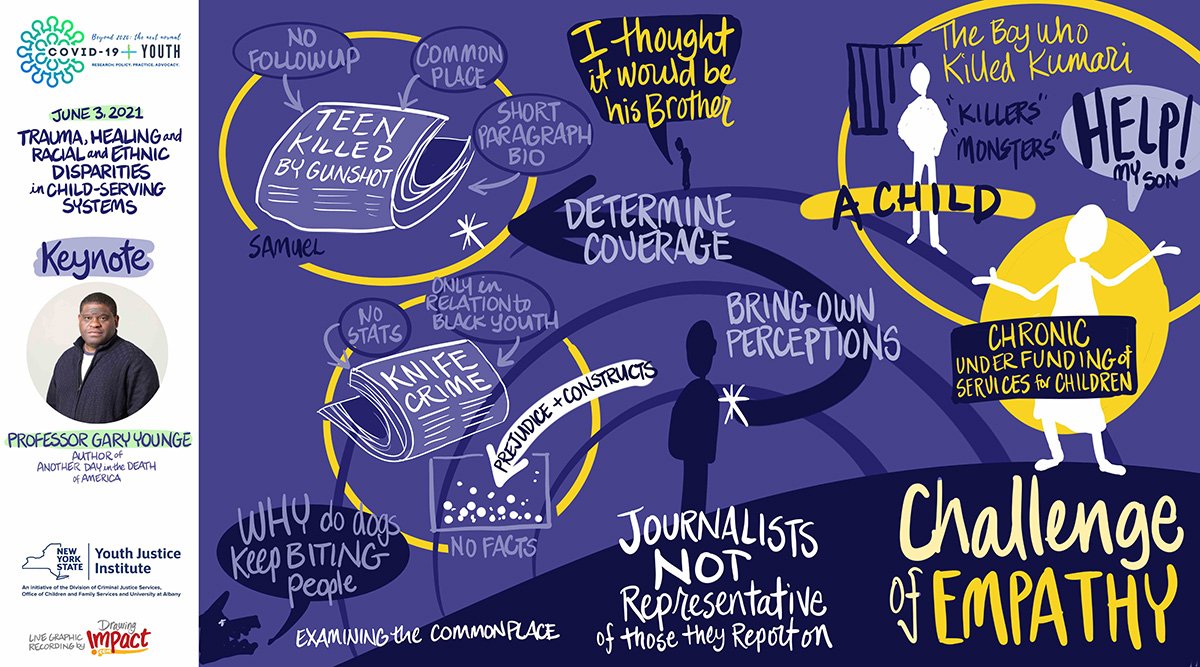 Beyond 2020: the next normal
COVID-19 + YOUTH
RESEARCH. POLICY. PRACTICE. ADVOCACY.
JUNE 3, 2021
TRAUMA, HEALING and
RACIAL and ETHNIC
DISPARITIES
in CHILD-SERVING
SYSTEMS
Keynote
PROFESSOR GARY YOUNGE
AUTHOR of
ANOTHER DAY in the DEATH
of AMERICA
NEW
YORK
STATE
Youth Justice
Institute
An initiative of the Division of Criminal Justice Services,
Office of Children and Family Services and University at Albany
LIVE GRAPHIC
RECORDING by
Drawing
Impact
.com
NO
FOLLOWUP
COMMON
PLACE
SHORT
PARAGRAPH
BIO
TEEN
KILLED
BY GUNSHOT
SAMUEL
I thought
it would be
his Brother
DETERMINE
COVERAGE
The Boy who
Killed Kumari
"KILLERS"
"MONSTERS"
HELP!
MY SON
A CHILD
NO
STATS
ONLY in
RELATION to
BLACK YOUTH
KNIFE
CRIME
PREJUDICE + CONSTRUCTS
NO FACTS
BRING OWN
PERCEPTIONS
CHRONIC
UNDERFUNDING of
SERVICES for CHILDREN
WHY do dogs
Keep BITING
people
EXAMINING the COMMONPLACE
JOURNALISTS
NOT
Representative
of those they Report on
Challenge
of EMPATHY